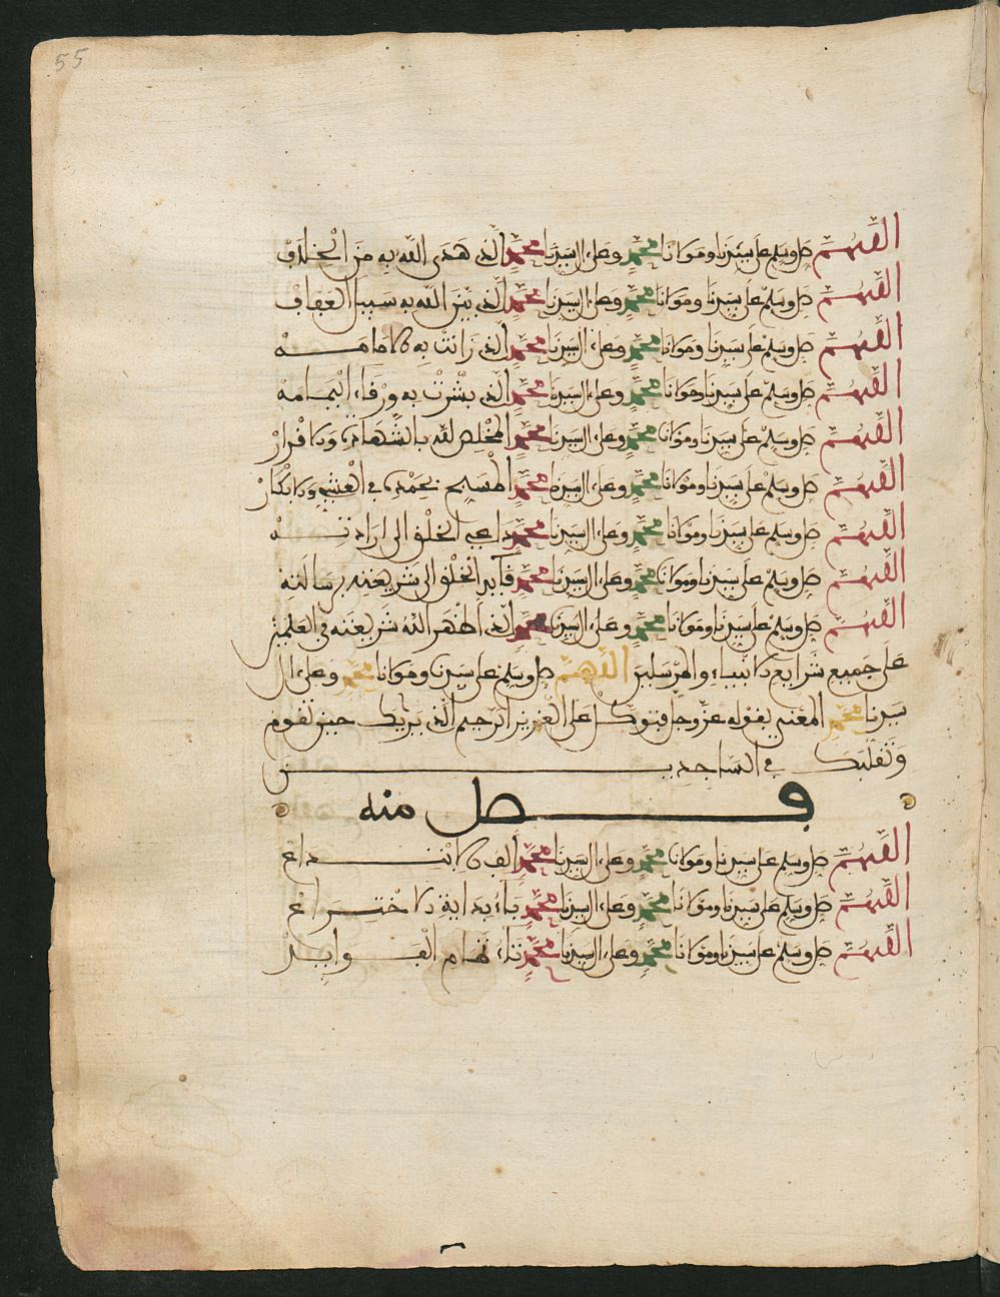 55
اللهم صل وسلم على سيدنا ومولانا محمد وعلى ءال سيدنا محمد الذى هدى الله به من الخلاف
اللهم صل وسلم على سيدنا ومولانا محمد وعلى ءال سيدنا محمد الذى بين الله به سبيل العفاف
اللهم صل وسلم على سيدنا ومولانا محمد وعلى ءال سيدنا محمد الذى زانت به الامامه
اللهم صل وسلم على سيدنا ومولانا محمد وعلى ءال سيدنا محمد الذى بشرت به ورقاء اليمامه
اللهم صل وسلم على سيدنا ومولانا محمد وعلى ءال سيدنا محمد المخلص لله بالشهادة والافرار
اللهم صل وسلم على سيدنا ومولانا محمد وعلى ءال سيدنا محمد المسبح بحمده في العشي والابكار
اللهم صل وسلم على سيدنا ومولانا محمد وعلى ءال سيدنا محمد داعي الخلق الى ارادته
اللهم صل وسلم على سيدنا ومولانا محمد وعلى ءال سيدنا محمد قايد الخلق الى شريعته برسالته
اللهم صل وسلم على سيدنا ومولانا محمد وعلى ءال سيدنا محمد الذى أظهر الله شريعته في العلمين
على جميع شرايع الانبياء والمرسلين اللهم صل وسلم على سيدنا ومولانا محمد وعلى ءال
سيدنا محمد المعني بقوله عز وجل فتوكل على العزيز الرحيم الذى يريك حين تقوم
وتقلبك في الساجدين
فصل منه
اللهم صل وسلم على سيدنا ومولانا محمد وعلى ءال سيدنا محمد ألف الابتداع
اللهم صل وسلم على سيدنا ومولانا محمد وعلى ءال سيدنا محمد باء بداية الاختراع
اللهم صل وسلم على سيدنا ومولانا محمد وعلى ءال سيدنا محمد تاء تمام الفوايد